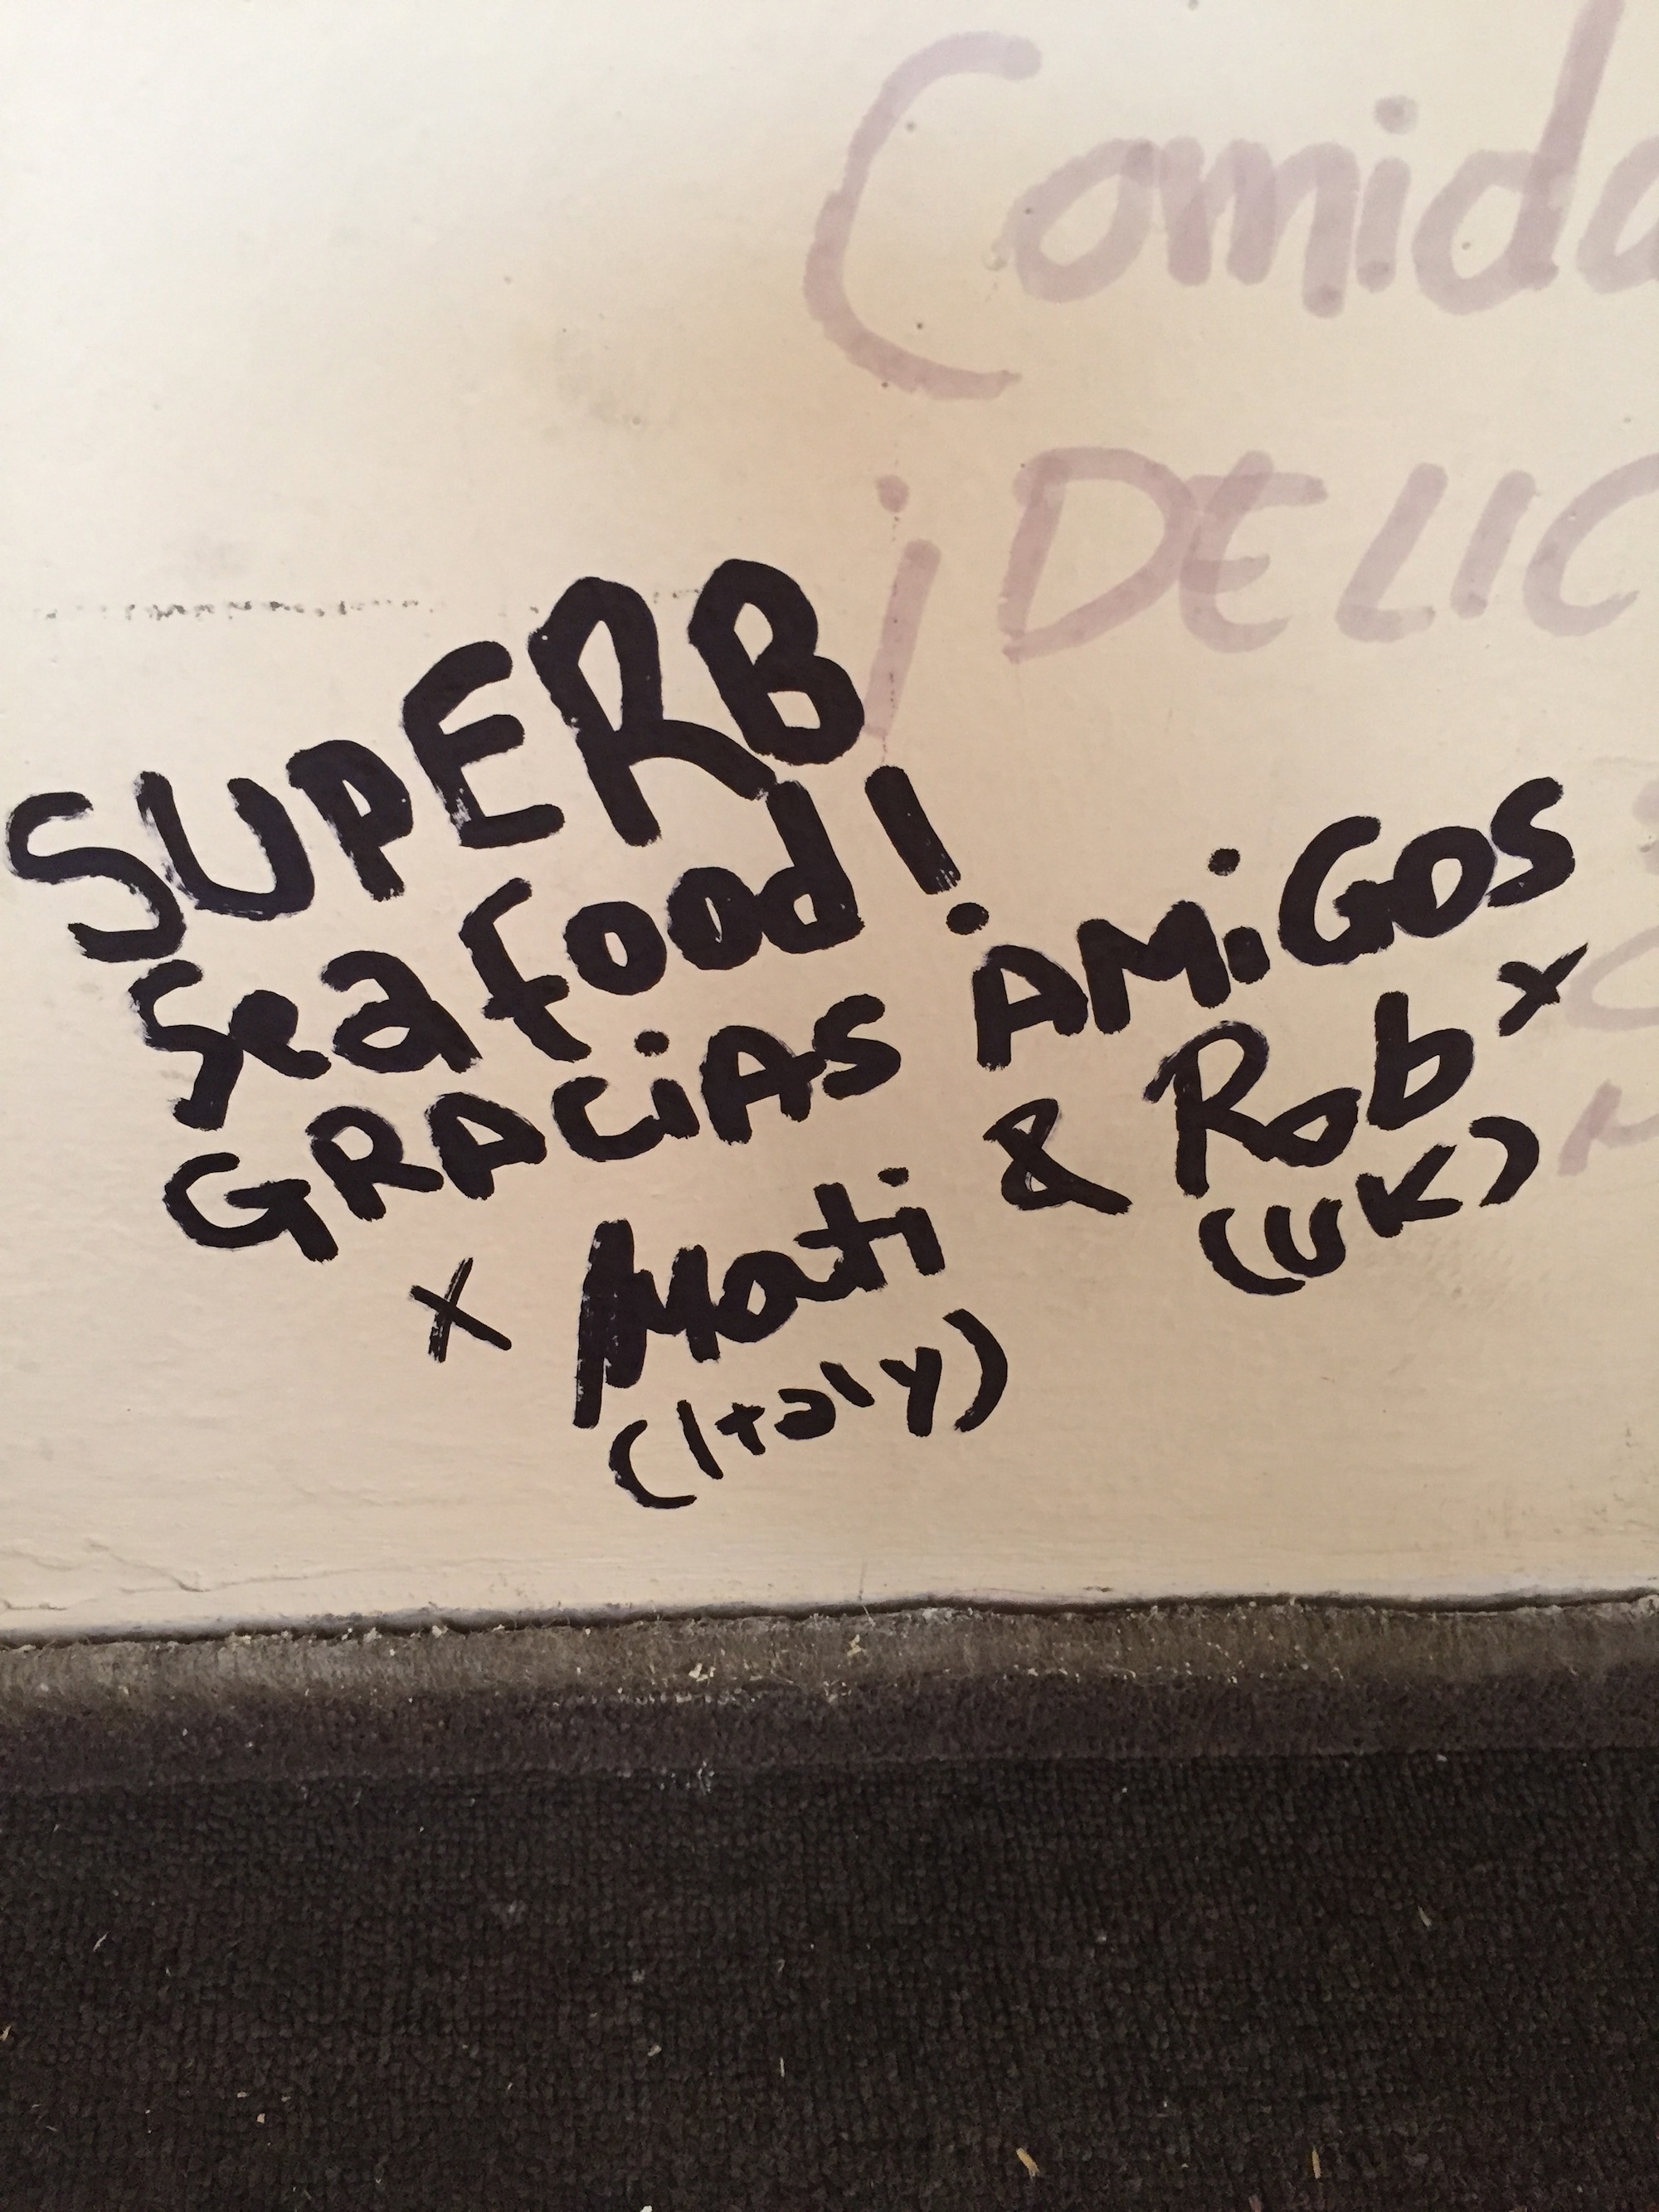 Comida
¡DELIC
SUPERB
seafood!
GRACiAS AMiGOS
x Mati & Rob x
(Italy) (UK)